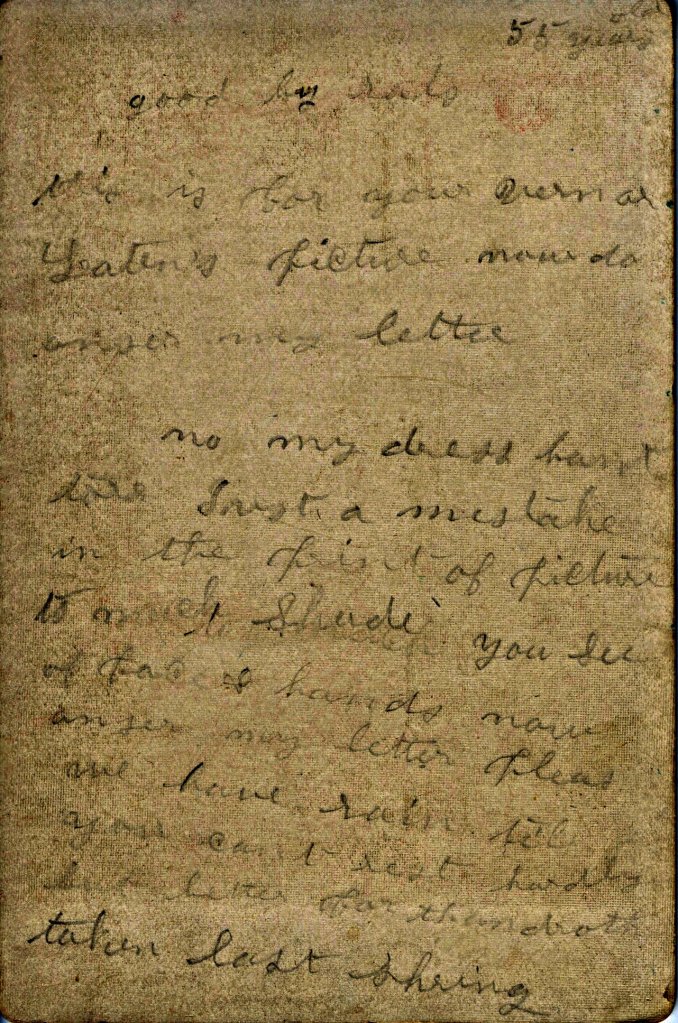 55 years old
good by
this is for your
Yeaten's picture now do
anser my letter
no my dress hant
tore Just a mistake
in the paint of picture
to much Shade you see
of face & hands now
anser my letter pleas
we have rain till
you cant rest hardly
but better for than
taken last Shring